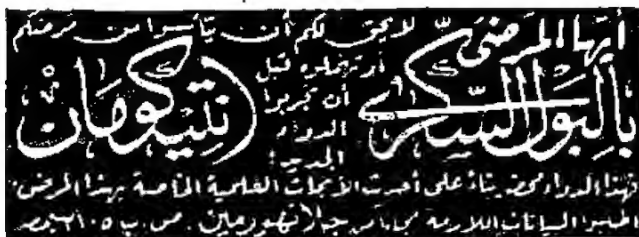 أيها المرضى
بالبول السكرى
لا يحق لكم أن تيأسوا من مرضكم
أو تهملوه قبل
أن تجربوا
الدواء
الجديد :
انتيكومان
فهذا الدواء محضر بناء على أحدث الأبحاث العلمية الخاصة بهذا المرض
اطلبوا البيانات اللازمة مجانا من جلانهورمين . ص . ب ٢١٠٥ بمصر